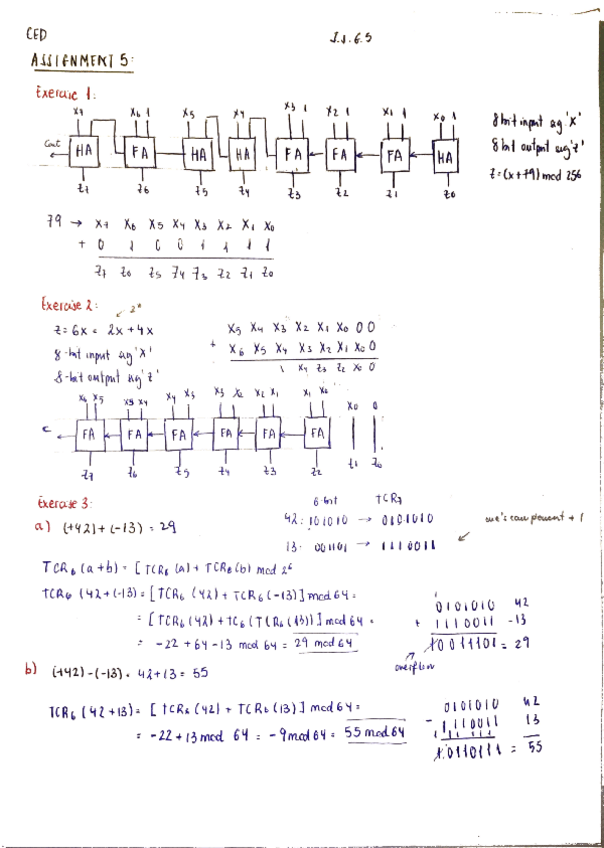 CED
J.J. 6.5
ASSIGNMENT 5:
Exercise 1:
X7 X6 1 X5 X4 X3 1 X2 1 X1 1 X0 1
Cout HA FA HA HA FA FA FA HA
Z7 Z6 Z5 Z4 Z3 Z2 Z1 Z0
8 bit input sig 'X'
8 bit output sig 'z'
Z=(x+79) mod 256
79 → X7 X6 X5 X4 X3 X2 X1 X0
+ 0 1 0 0 1 1 1 1
Z7 Z6 Z5 Z4 Z3 Z2 Z1 Z0
Exercise 2:
Z=6X = 2X+4X
8-bit input sig 'X'
8-bit output sig 'Z'
X5 X4 X3 X2 X1 X0 0 0
+ X6 X5 X4 X3 X2 X1 X0 0
X0 0
X6 X5 X5 X4 X4 X3 X3 X2 X2 X1 X1 X0 X0 0
C FA FA FA FA FA FA
Z7 Z6 Z5 Z4 Z3 Z2 Z1 Z0
Exercise 3:
a) (+42)+(-13) = 29
6 bit TCR7
42: 101010 → 0101010
13: 001101 → 1110011
one's component + 1
TCR6 (a+b) = [TCR6 (a) + TCR6(b) mod 2^6
TCR6 (42+(-13)) = [TCR6 (42) + TCR6 (-13)] mod 64 =
= [TCR6 (42) + TC6 (TCR6 (13))] mod 64 =
= -22 + 64 -13 mod 64 = 29 mod 64
0101010 42
+ 1110011 -13
10011101 = 29
overflow
b) (+42)-(-13) = 42+13 = 55
TCR6 (42+13) = [TCR6 (42) + TCR6 (13)] mod 64 =
= -22+13 mod 64 = -9 mod 64 = 55 mod 64
0101010 42
- 1110011 13
10110111 = 55